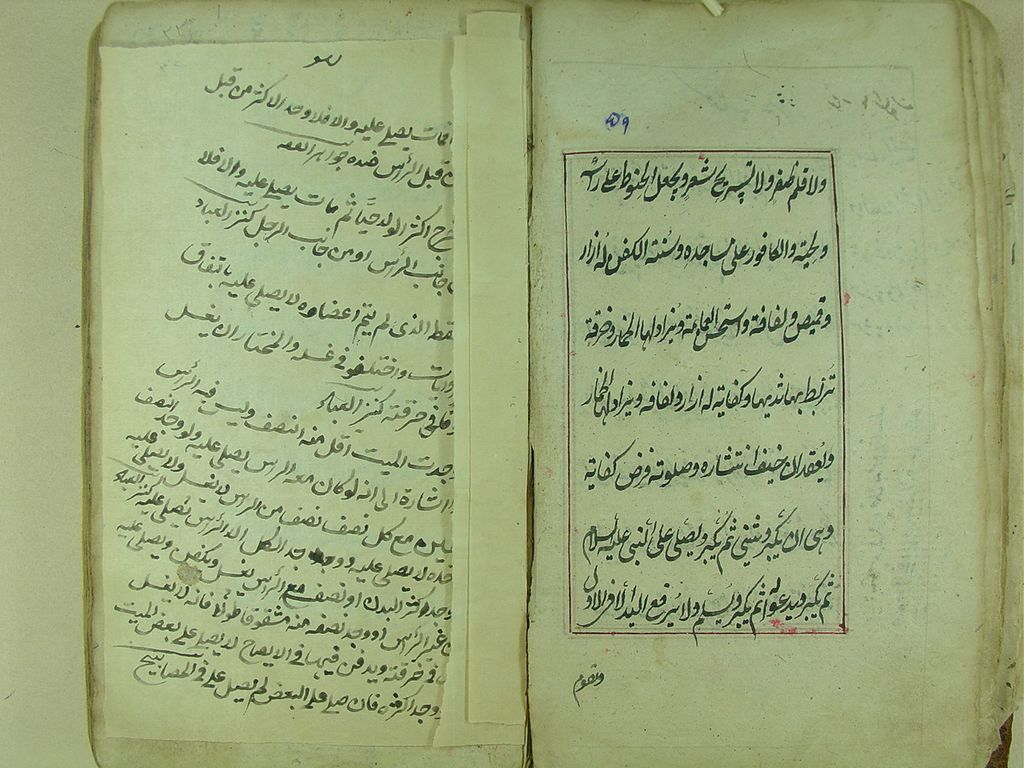 ٥٩
ولا قلم ظفر ولا تسريح شعر ويجعل الحنوط على رأسه
ولحيته والكافور على مساجده وسنة الكفن له ازار
وقميص ولفافة واستحسن العمامة ويزاد لها الخمار وخرقة
تربط بها ثدييها وكفايته له ازار ولفافه ويزاد لها الخمار
ويعقد ان خيف انتشاره وصلوته فرض كفاية
وهى ان يكبر ويثنى ثم يكبر ويصلى على النبى عليه السلام
ثم يكبر ويدعو له ثم يكبر ويسلم ولا يرفع اليد الا فى الاول
وتقوم
فمات يصلى عليه والا فلا وحد الاكثر من قبل
قبل الرأس صدره جواهر الفقه
خرج اكثر الولد حيا ثم مات يصلى عليه والا فلا
جانب الرأس او من جانب الرجل كنز العباد
السقط الذى لم يتم اعضاؤه لا يصلى عليه باتفاق
الروايات واختلفوا فى غسله والمختار ان يغسل
فى خرقة كنز العباد
وجدت الميت اقل من النصف وليس فيه الرأس
اشارة الى انه لو كان معه الرأس يصلى عليه ولو وجد النصف
مع كل نصف نصف من الرأس لا يغسل ولا يصلى
لا يصلى عليه ووجد الكل الا الرأس يصلى عليه كنز العباد
وجد اكثر البدن او نصف مع الرأس يغسل ويكفن ويصلى عليه
غير الرأس او وجد نصفه منه مشقوقا طولا فانه لا يغسل
فى خرقة ويدفن فيها فى الايضاح لا يصلى على بعض الميت
وجد اكثره فان صلى على البعض لم يصل على فى المصابيح